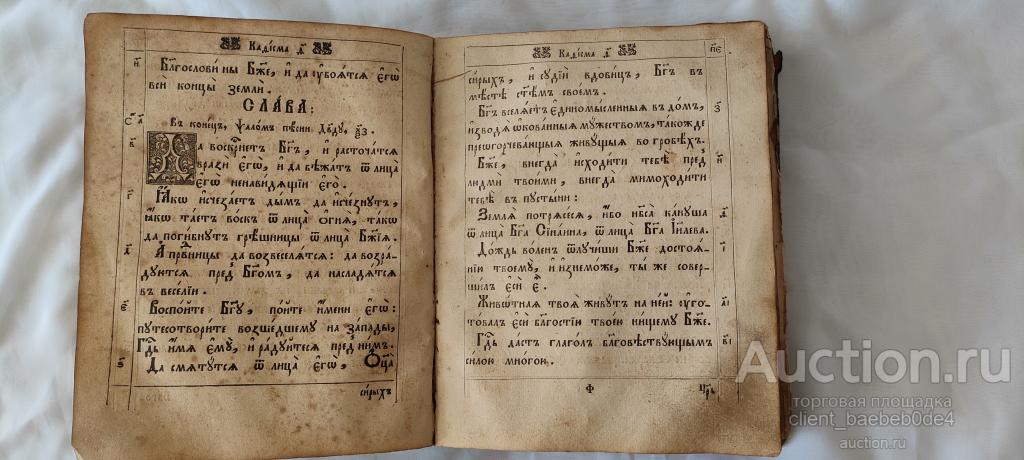 Каѳісма д҃
и҃
Бл҃гослови ны Бж҃е, и да оубоятся єгѡ̀
вси концы земли.
СЛА́ВА:
Въ конец, ѱалом пѣсни Дв҃ду, ѯ҃з.
а҃
Да воскр҃нет Бг҃ъ, и расточатся
в҃
врази єгѡ̀, и да бѣжат ѿ лица
єгѡ̀ ненавидящіи єго.
г҃
Ꙗкѡ исчезает дым да исчезнут,
ꙗкѡ таєт воск ѿ лица ѻгня, такѡ
да погибнут грѣшницы ѿ лица Бж҃ія.
д҃
А пр҃вницы да возвеселятся: да возра-
дуются пред Бг҃ом, да насладятся
в веселіи.
є҃
Воспойте Бг҃у, пойте имени єгѡ̀:
путесотворите возшедшему на запады,
Гд҃ь имя єму, и радуйтеся пред ним.
ѕ҃
Да смятутся ѿ лица єгѡ̀, Оц҃а
сирыхъ
Каѳісма д҃
п҃є
сирыхъ, и судіи вдовицъ, Бг҃ъ в
мѣстѣ ст҃ѣм своем.
з҃
Бг҃ъ вселяєт єдиномысленныя в дом,
изводя ѡкованныя мужеством, такожде
преѡгорчевающыя живущыя во гробѣхъ.
и҃
Бж҃е, внегда исходити тебѣ пред
людми твоими, внегда мимоходити
тебѣ в пустыни:
ѳ҃
Земля потрясеся, ибо нб҃са кануша
ѿ лица Бг҃а Сінаина, ѿ лица Бг҃а Іи҃лева.
і҃
Дождь волен ѿлучиши Бж҃е достоя-
нію твоему, и изнеможе, ты же совер-
шил єси є.
а҃і
Живѡтная твоя живут на ней: оуго-
товал єси бл҃гостію твоею нищему Бж҃е.
в҃і
Гд҃ь даст глагол бл҃говѣствующым
силою многою.
Ф
Цр҃ь
Auction.ru
торговая площадка
client_baebeb0de4
auction.ru